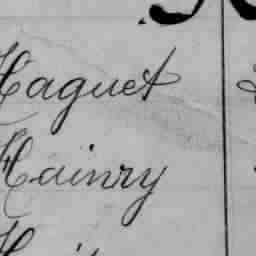 Haguet
Hainry